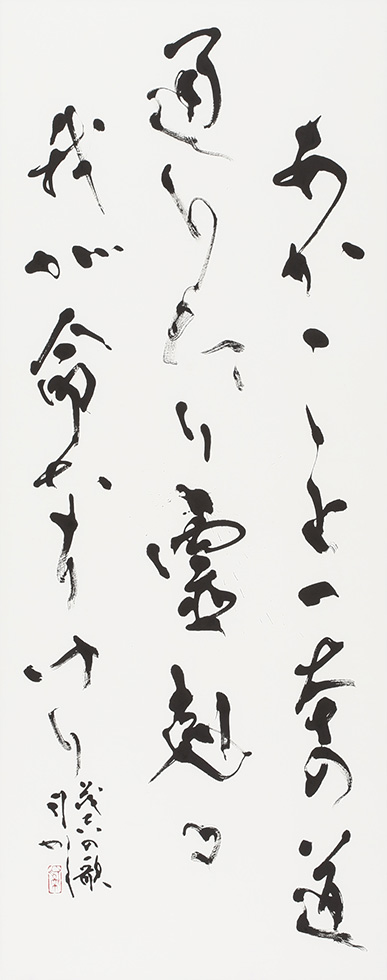 あか〱と一本の道
通りたり靈剋る
我が命なりけり
茂吉の歌